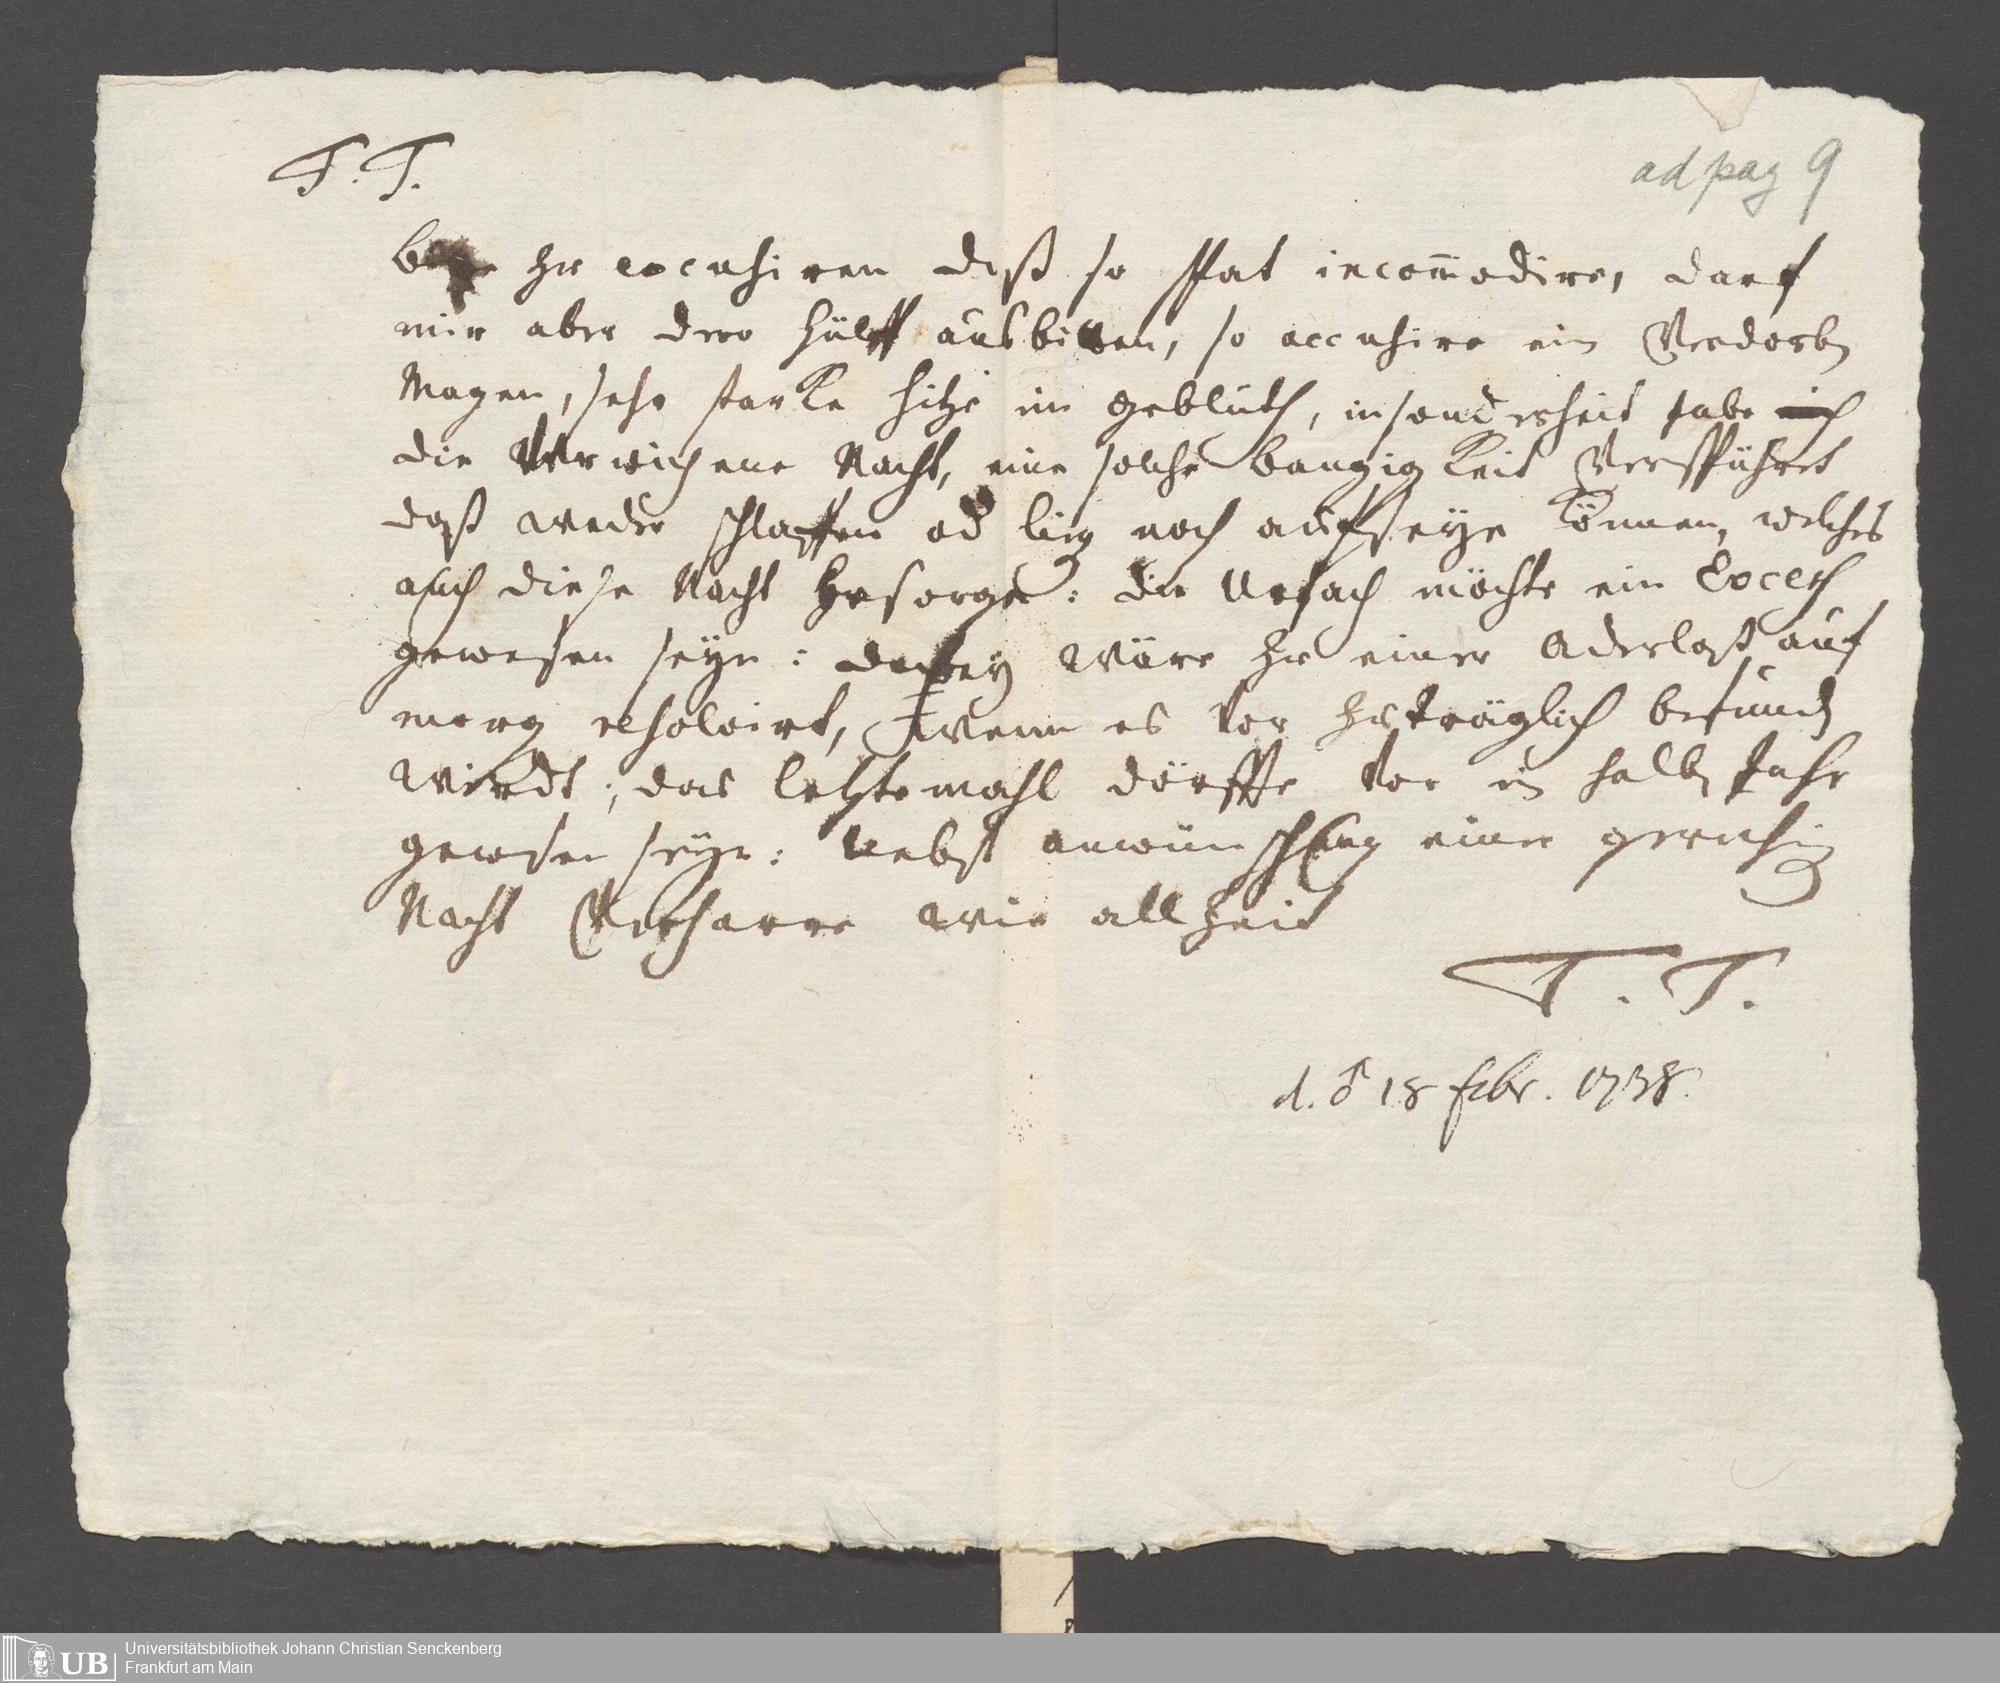 T. T.
ad pag 9
Bitte zu excusiren daß so spat incom̄odire, darf
mir aber dero hülff ausbitten, so accusire ein Verdorbn
Magen, sehr starke hitze im geblüth, insonderheit habe ich
die Verwichene Nacht, eine solche bangigkeit Verspühret
daß weder schlaffen od lieg noch aufseyn können, welches
auch diese Nacht besorge: die Ursach möchte ein Excess
gewesen seyn: dabey wäre zu einer Aderlaß auf
morg resolvirt, wenn es vor zuträglich befund
wirdt; das letzte mahl dörffte vor ein halb Jahr
gewesen seyn: nebst anwünschung einer geruhig
Nacht Verharre wie allzeit
T. T.
d. ♂ 18 Febr. 1738.
Universitätsbibliothek Johann Christian Senckenberg
Frankfurt am Main
UB